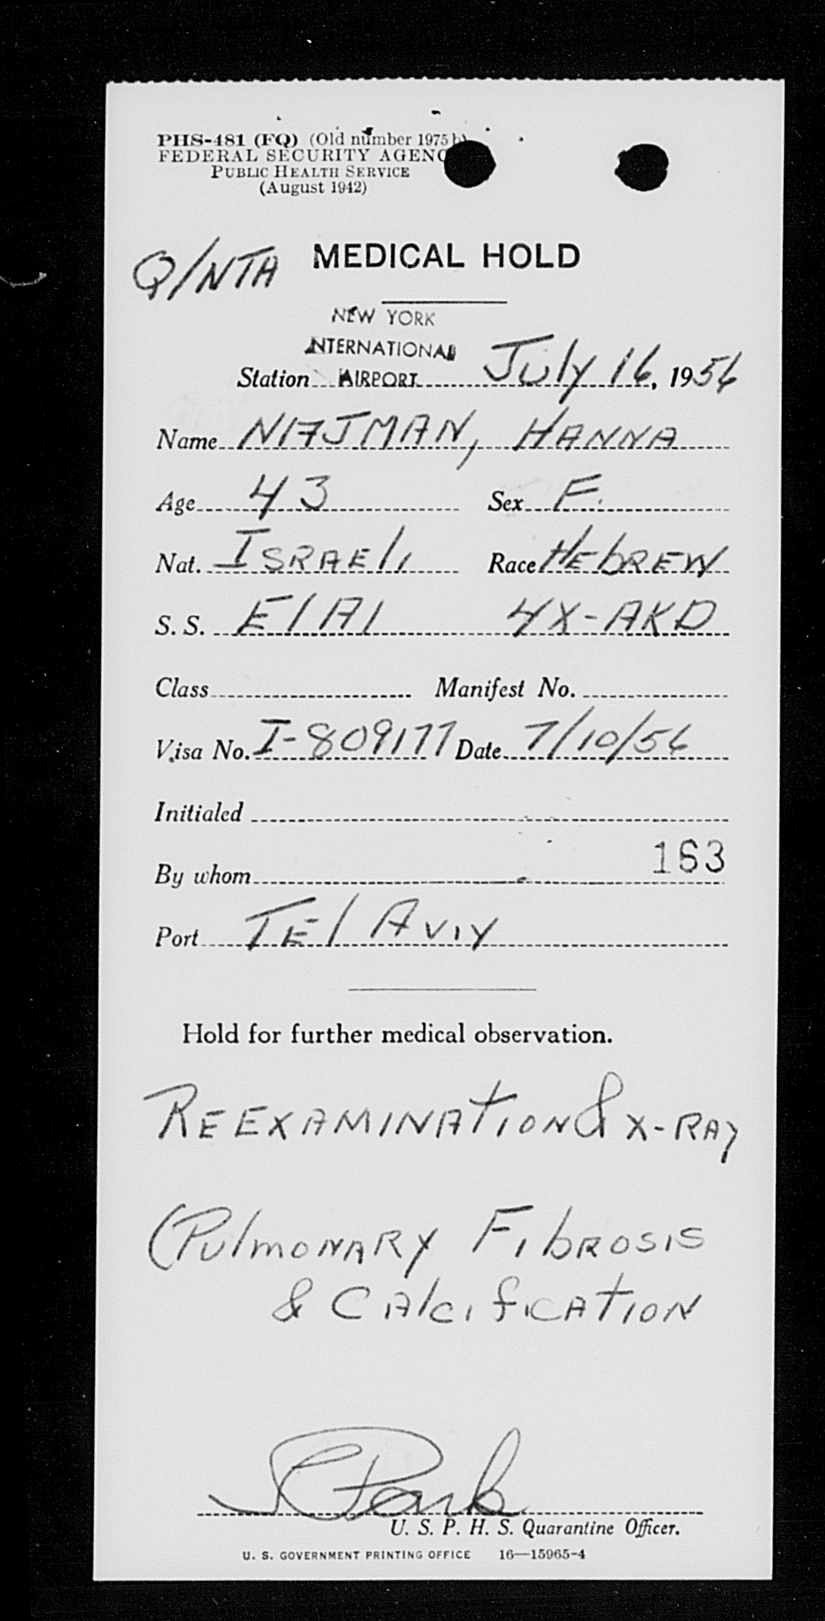 PHS-481 (FQ) (Old number 1975 b)
FEDERAL SECURITY AGENC
PUBLIC HEALTH SERVICE
(August 1942)
Q/NTA MEDICAL HOLD
NEW YORK
INTERNATIONAL
Station AIRPORT July 16, 1956
Name NAJMAN, HANNA
Age 43 Sex F.
Nat. ISRAEli Race HEbREW
S. S. ElAl 4X-AKD
Class Manifest No.
Visa No. I-809177 Date 7/10/56
Initialed
163
By whom
Port TEl AVIV
Hold for further medical observation.
REEXAMINATION & X-RAY
(PulmONARY FibROSIS
& CAlcificATION
U. S. P. H. S. Quarantine Officer.
U. S. GOVERNMENT PRINTING OFFICE 16—15965-4